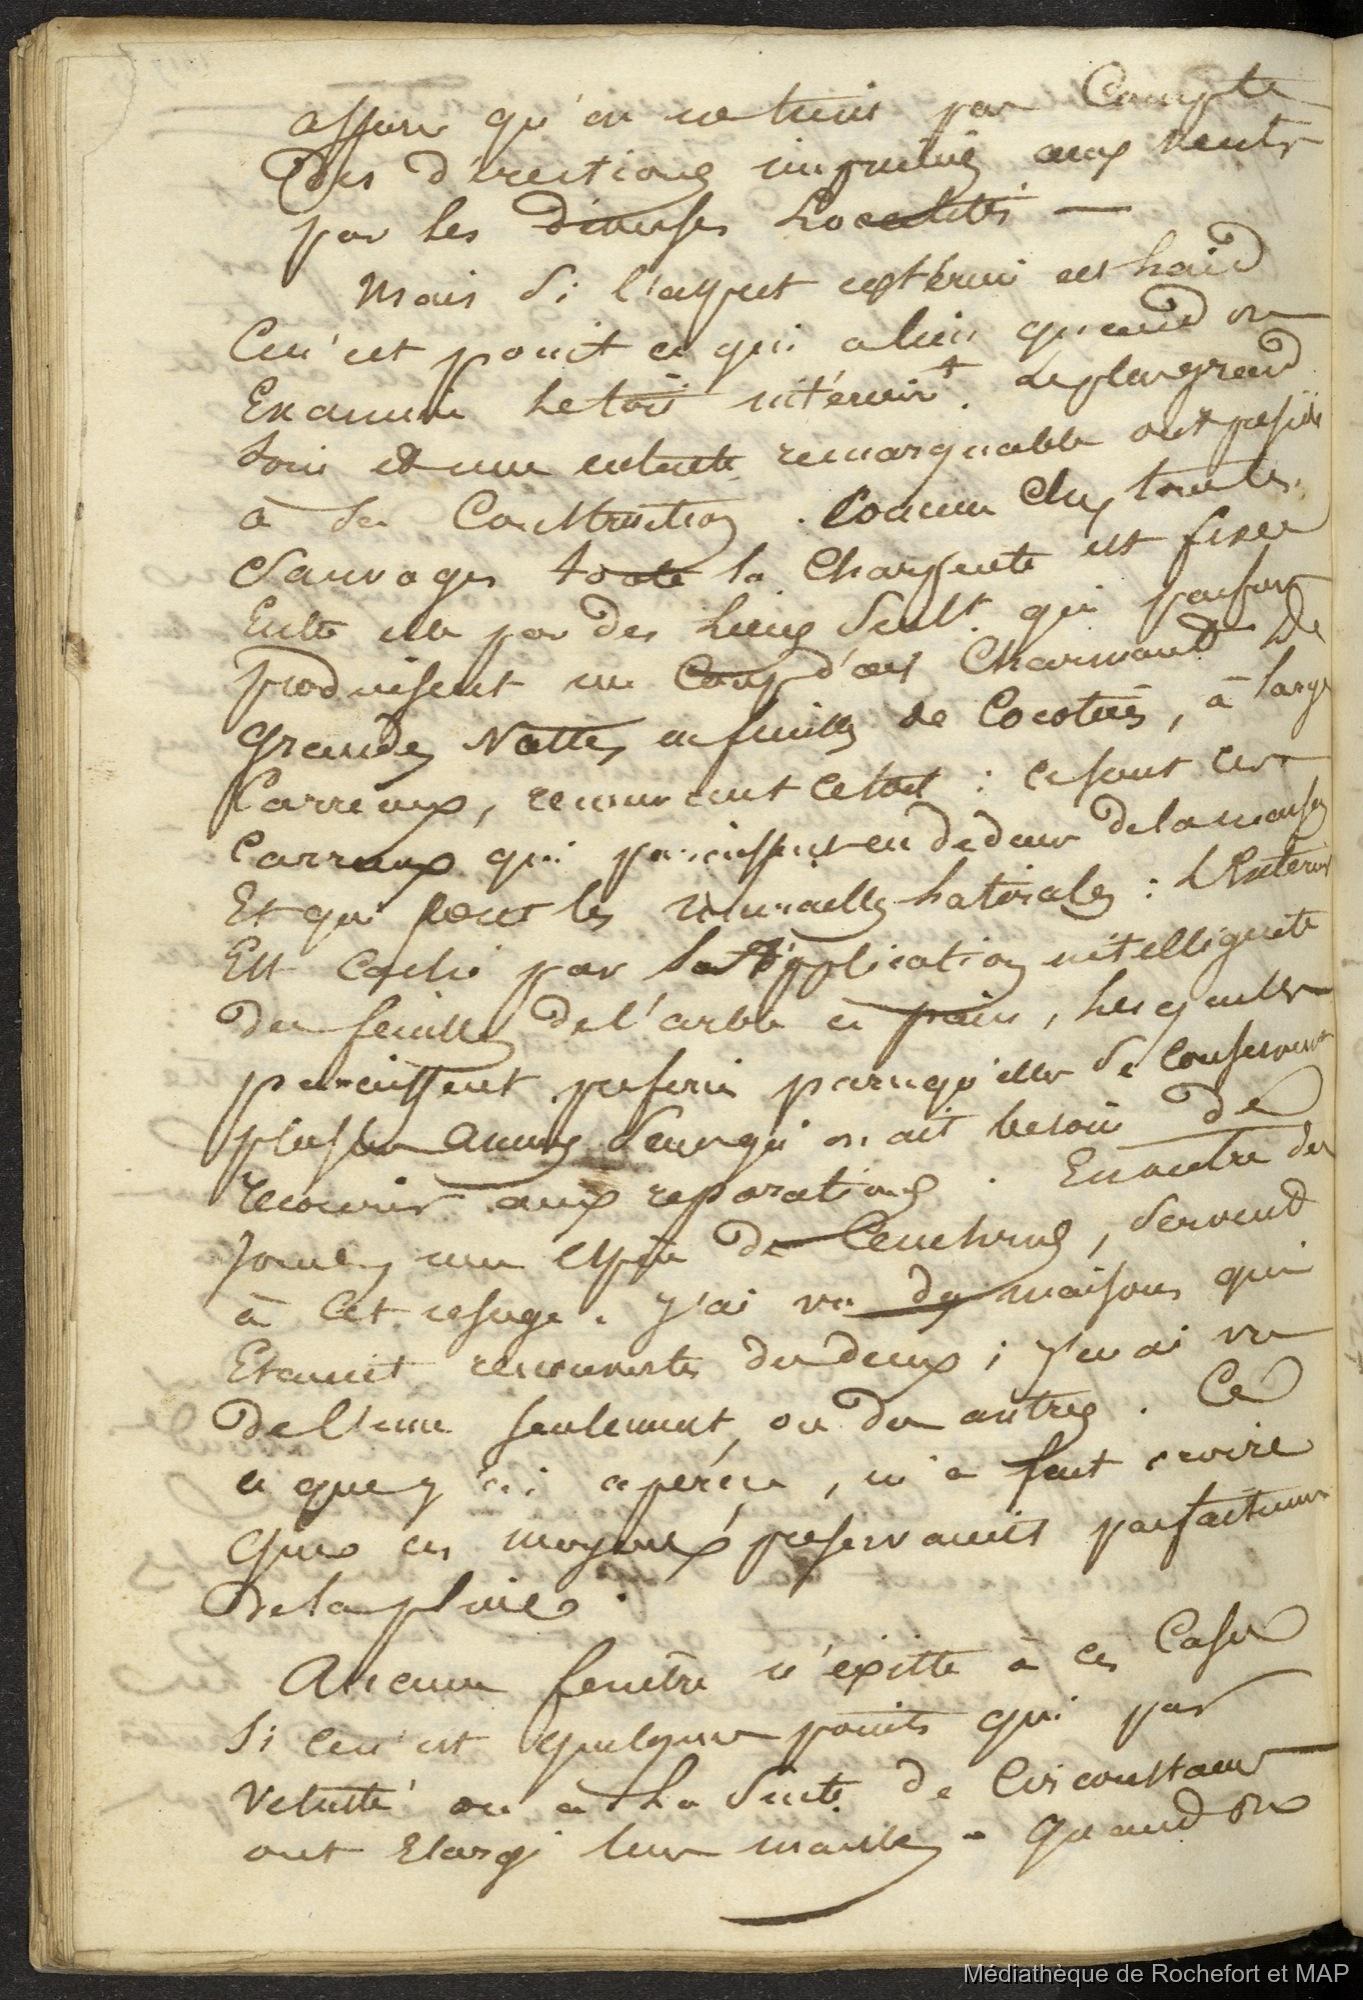 assure qu'on ne tenis pas Compte
Des directions imprimés aux vents
par les diverses Localités —
Mais si l'aspect extérieur est laid
Ce n'est point ce qui a lieu quand on
Examine le toit intérieurt. Le plus grand
soin et une entente remarquable ont présidé
à sa Construction. Comme chez toutes
Sauvages toute la Charpente est fixée
Entre elle par des liens Seult. qui parfois
produisent un Coup d'oeil Charmant De
grandes Nattes en feuilles de Cocotiers, à larges
Carreaux, recouvrent ce toit : ce sont ces
Carreaux qui paroissent en dedans de la maison
Et qui sont les murailles latérales : L'Exterieur
Est Caché par l'application intelligente
des feuilles de l'arbre à pain, lesquelles
paroissent préférées parcequ'elles se conservent
plusieurs années sans qu'on ait besoin de
recourir aux réparations. En outre des
joncs, une espèce de Cenchrus, servent
à cet usage. J'ai vu des maisons qui
Etaient recouvertes des deux ; j'en ai vu
de l'une seulement, ou des autres. Ce
ce que j'ai aperçu, m'a fait croire
que ces moyens préservaient parfaitement
de la pluie.
Aucune fenêtre n'éxiste à ces Cases
si ce n'est quelques points qui par
Vetusté ou à la suite de Circonstances
ont Elargi leurs mailles - Quand on
Médiathèque de Rochefort et MAP